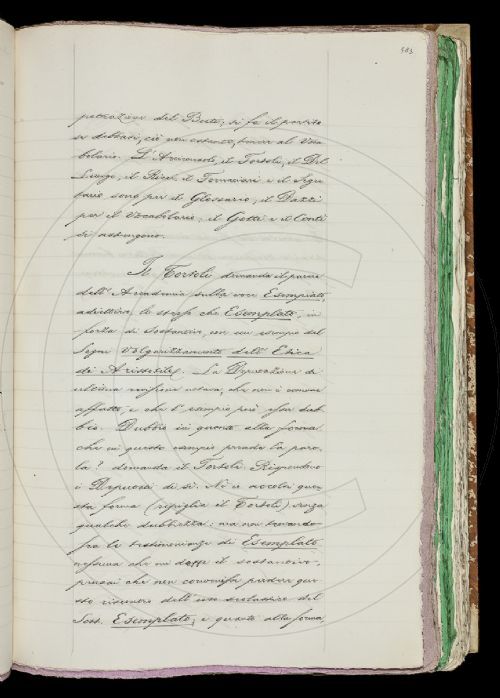 303
petrazione del Beete; si fa il partito
se debbasi, ciò non ostante, porre al Voca
bolario. L'Arciconsolo, il Tortoli, il Del
Lungo, il Ricci, il Tommasini e il Segre
tario sono per il Glossario; il Dazzi
per il Vocabolario; il Gotti e il Conti
si astengono.
Il Tortoli domanda il parere
dell'Accademia sulla voce Esemplato,
adiettivo, lo stesso che Esemplato, in
forza di sostantivo, con un esempio del
Segni Volgarizzamento dell'Etica
di Aristotile. La Deputazione di
revisione notava, che non è comune
affatto, e che l'esempio però esser dub
bio. Dubbio in quanto alla forma
che in questo esempio prende la paro
la? domanda il Tortoli. Rispondono
i Deputati di sì. Nè io accolsi que
sta forma (ripiglia il Tortoli) senza
qualche dubbiezza: ma non trovando
fra le testimonianze di Esemplato
nessuna che mi desse il sostantivo,
pensai che non convenisse perdere que
sto riscontro dell'uso del
Sost. Esemplato; e quanto alla forma,